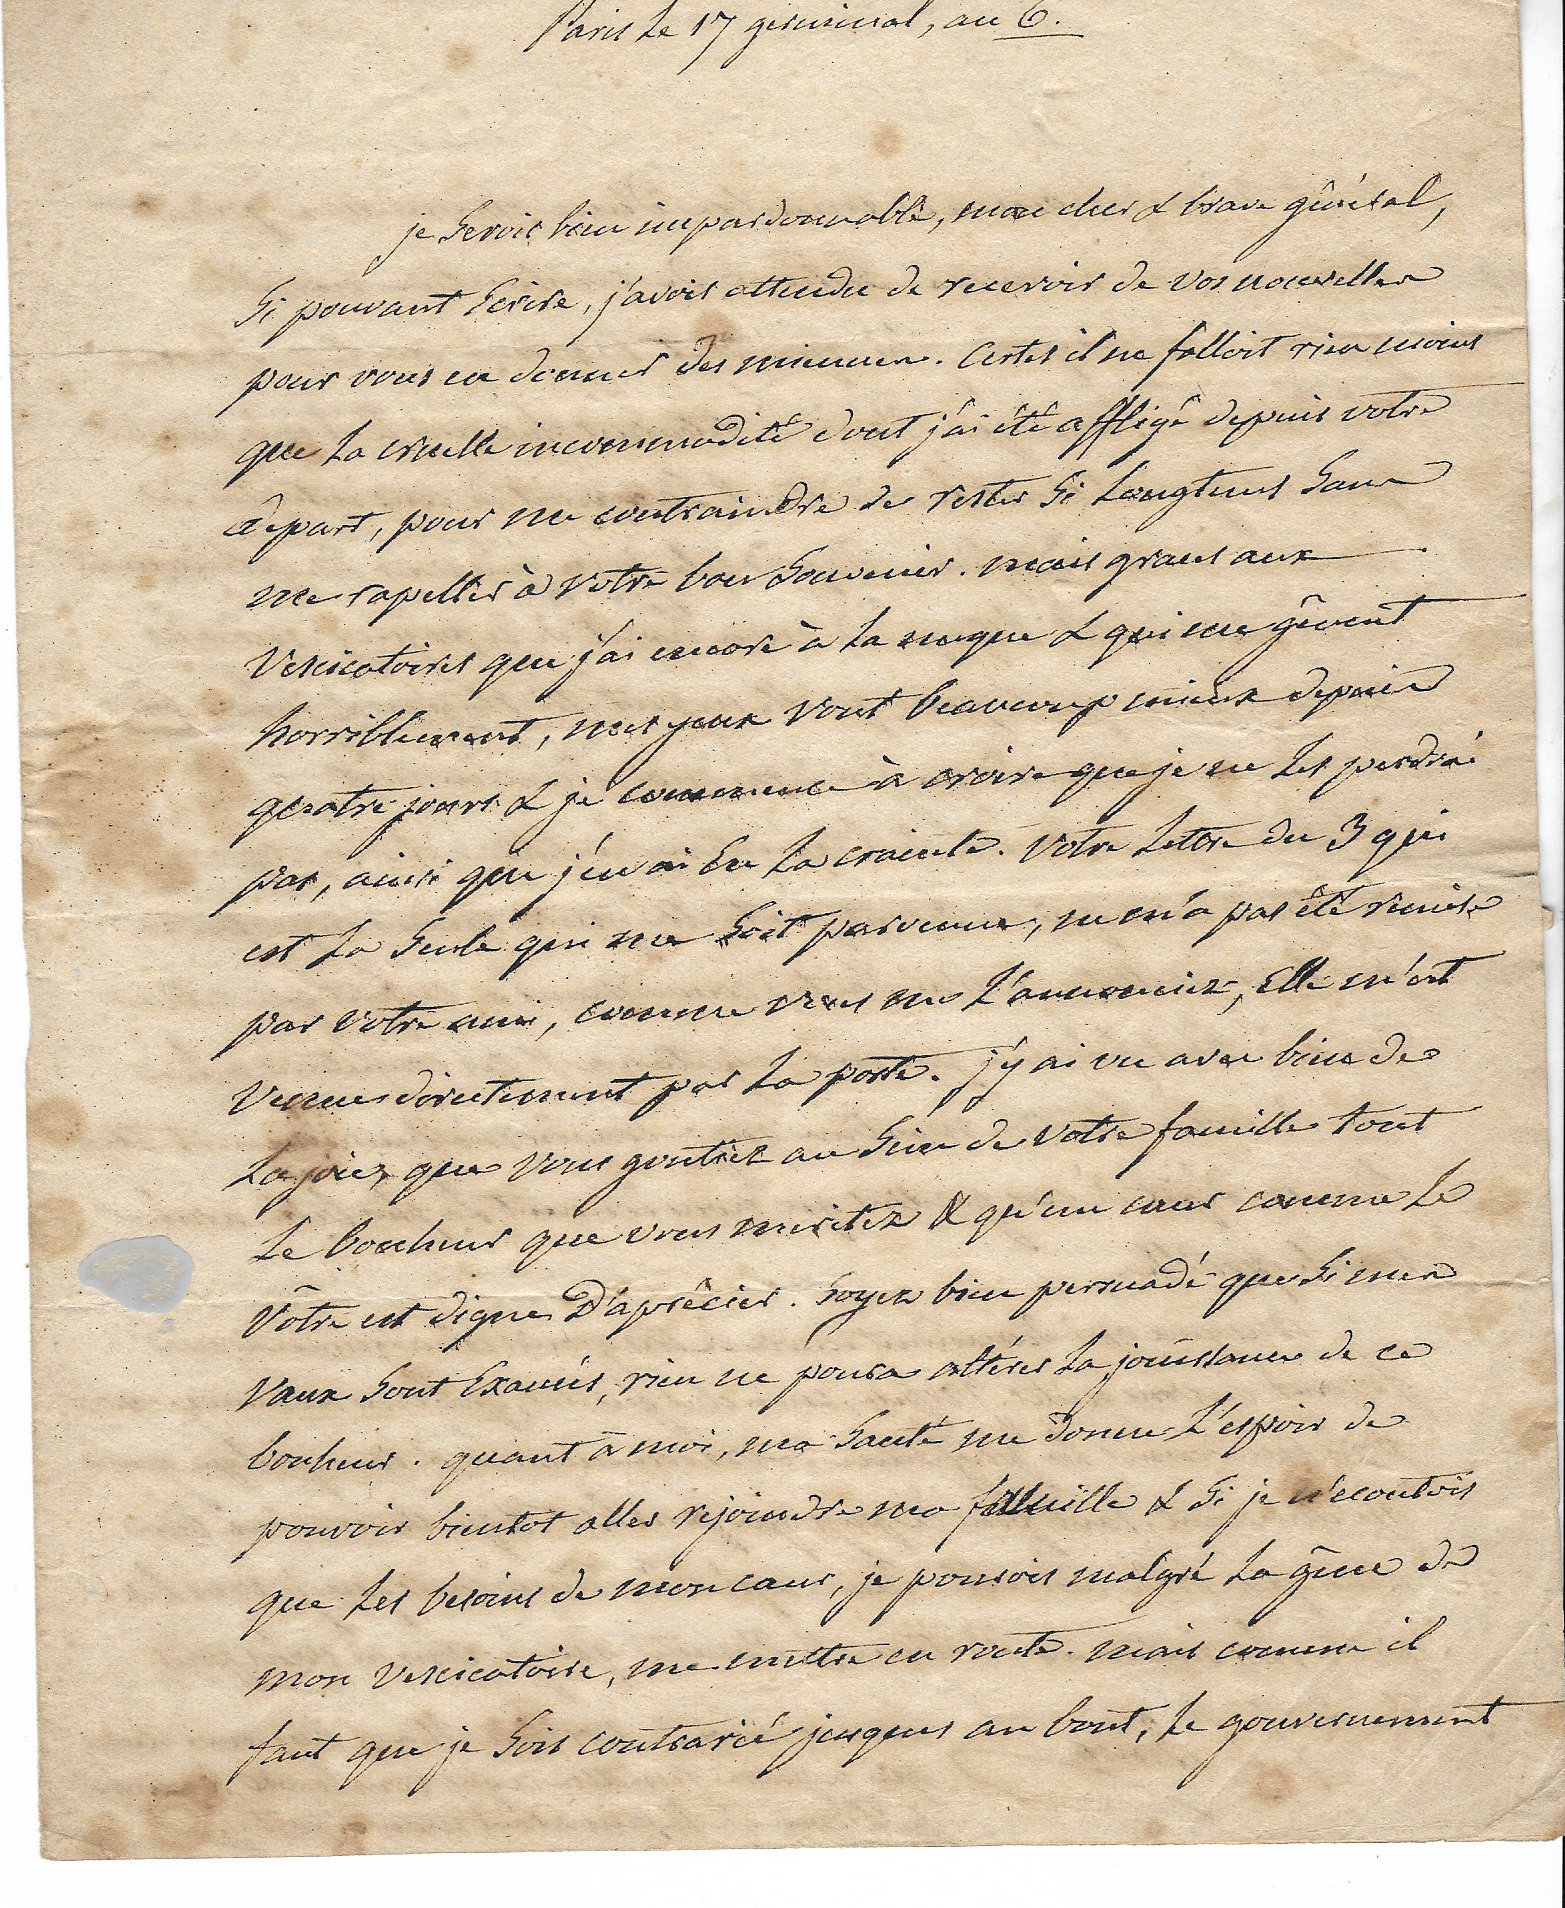 Paris le 17 germinal, an 6.
je serois bien impardonnable, mon cher & brave général,
si pouvant écrire, j'avois attendu de recevoir de vos nouvelles
pour vous en donner des miennes. Certes il ne falloit rien moins
que la cruelle incommodité dont j'ai été affligé depuis votre
depart, pour me contraindre de rester si longtems sans
me rapeller à votre bon souvenir. mais graces aux
vesicatoires que j'ai encore à la nuque & qui me gênent
horriblement, mes yeux vont beaucoup mieux depuis
quatre jours & je commence à croire que je ne les perdrai
pas, ainsi que j'en ai eu la crainte. Votre lettre du 3 qui
est la seule qui me soit parvenue, ne m'a pas été remise
par votre ami, comme vous me l'annonciez, elle m'est
venue directement par la poste. j'y ai vu avec bien de
la joie, que vous goutiez au sein de votre famille tout
le bonheur que vous meritez & qu'un cœur comme le
vôtre est digne d'aprécier. Soyez bien persuadé que si mes
vœux sont exaucés, rien ne poura altérer la jouissance de ce
bonheur. quant à moi, ma santé me donne l'espoir de
pouvoir bientot aller rejoindre ma famille & si je n'écoutois
que les besoins de mon cœur, je pourois malgré la gêne de
mon vesicatoire, me mettre en route. mais comme il
faut que je sois contrarié jusques au bout, le gouvernement